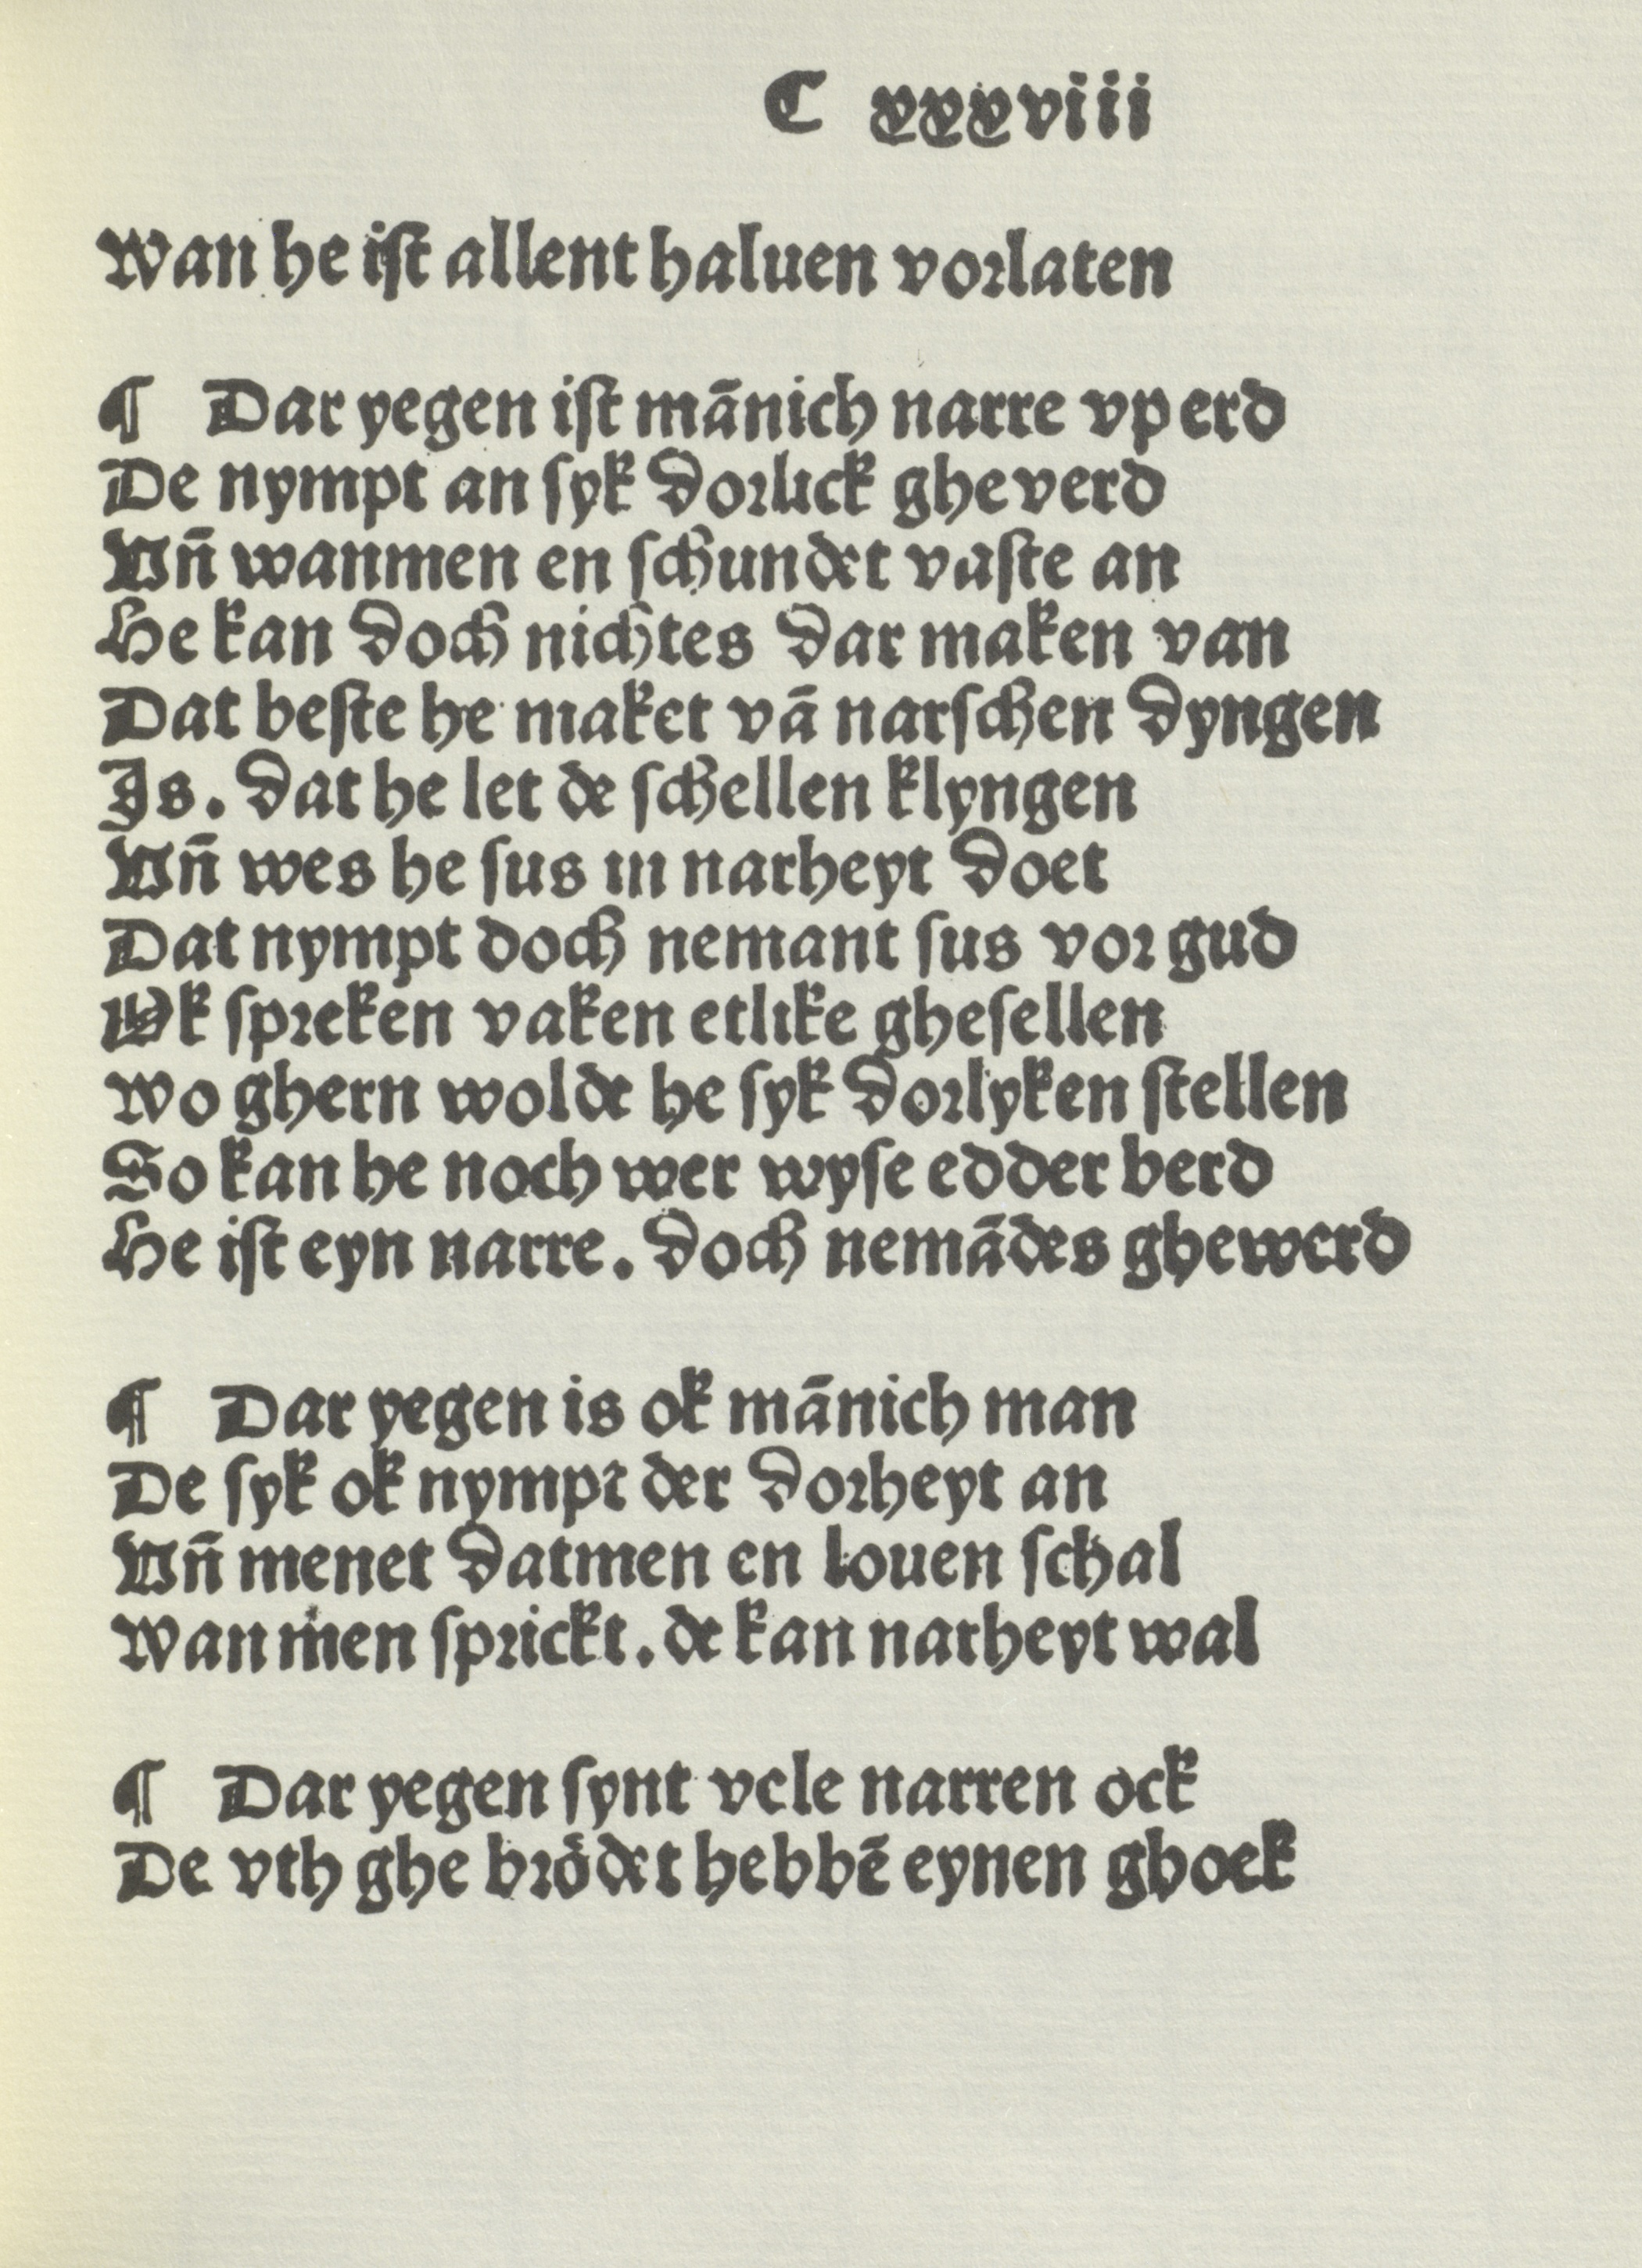 C xxxviii
Wan he iſt allent haluen vorlaten
¶ Dar yegen iſt mānich narre vp erd
De nympt an ſyk dorlick ghe verd
Vn̄ wanmen en ſchundet vaſte an
He kan doch nichtes dar maken van
Dat beſte he maket vā narſchen dyngen
Is. dat he let de ſchellen klyngen
Vn̄ wes he ſus in narheyt doet
Dat nympt doch nemant ſus vor gud
Ok ſpreken vaken etlike gheſellen
Wo ghern wolde he ſyk dorlyken ſtellen
So kan he noch wer wyſe edder berd
He iſt eyn narre. doch nemādes ghewerd
¶ Dar yegen is ok mānich man
De ſyk ok nympt der dorheyt an
Vn̄ menet datmen en louen ſchal
Wan men ſprickt. de kan narheyt wal
¶ Dar yegen ſynt vele narren ock
De vth ghe brödet hebbē eynen ghoek